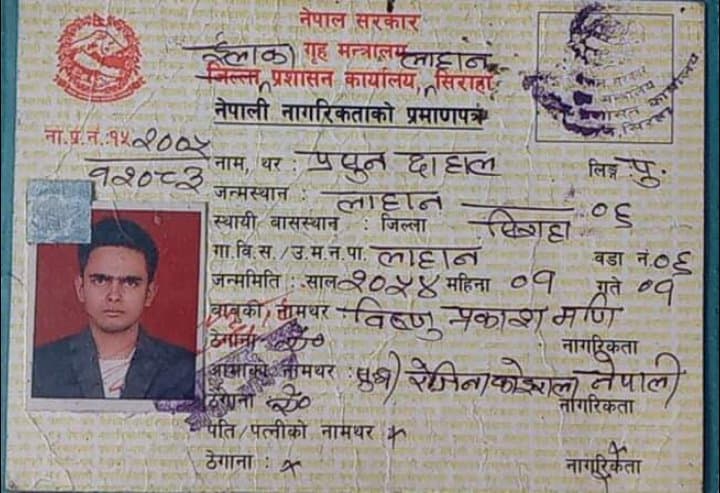 नेपाल सरकार
इलाका गृह मन्त्रालय लाहान
जिल्ला प्रशासन कार्यालय, सिराहा
नेपाली नागरिकताको प्रमाणपत्र
ना.प्र.नं.:१५२००५
१२०८३
नाम, थर : दाहाल लिङ्ग पु.
जन्मस्थान : लाहान ०६
स्थायी बासस्थान : जिल्ला सिराहा
गा.वि.स./उ.म.न.पा. लाहान वडा नं.०६
जन्ममिति : साल २०५४ महिना ०१ गते ०१
बाबुको नामथर विष्णु प्रकाश मणि
ठेगाना ऐ नागरिकता
आमाको नामथर : नेपाली
ठेगाना ऐ नागरिकता
पति/पत्नीको नामथर ×
ठेगाना : × नागरिकता